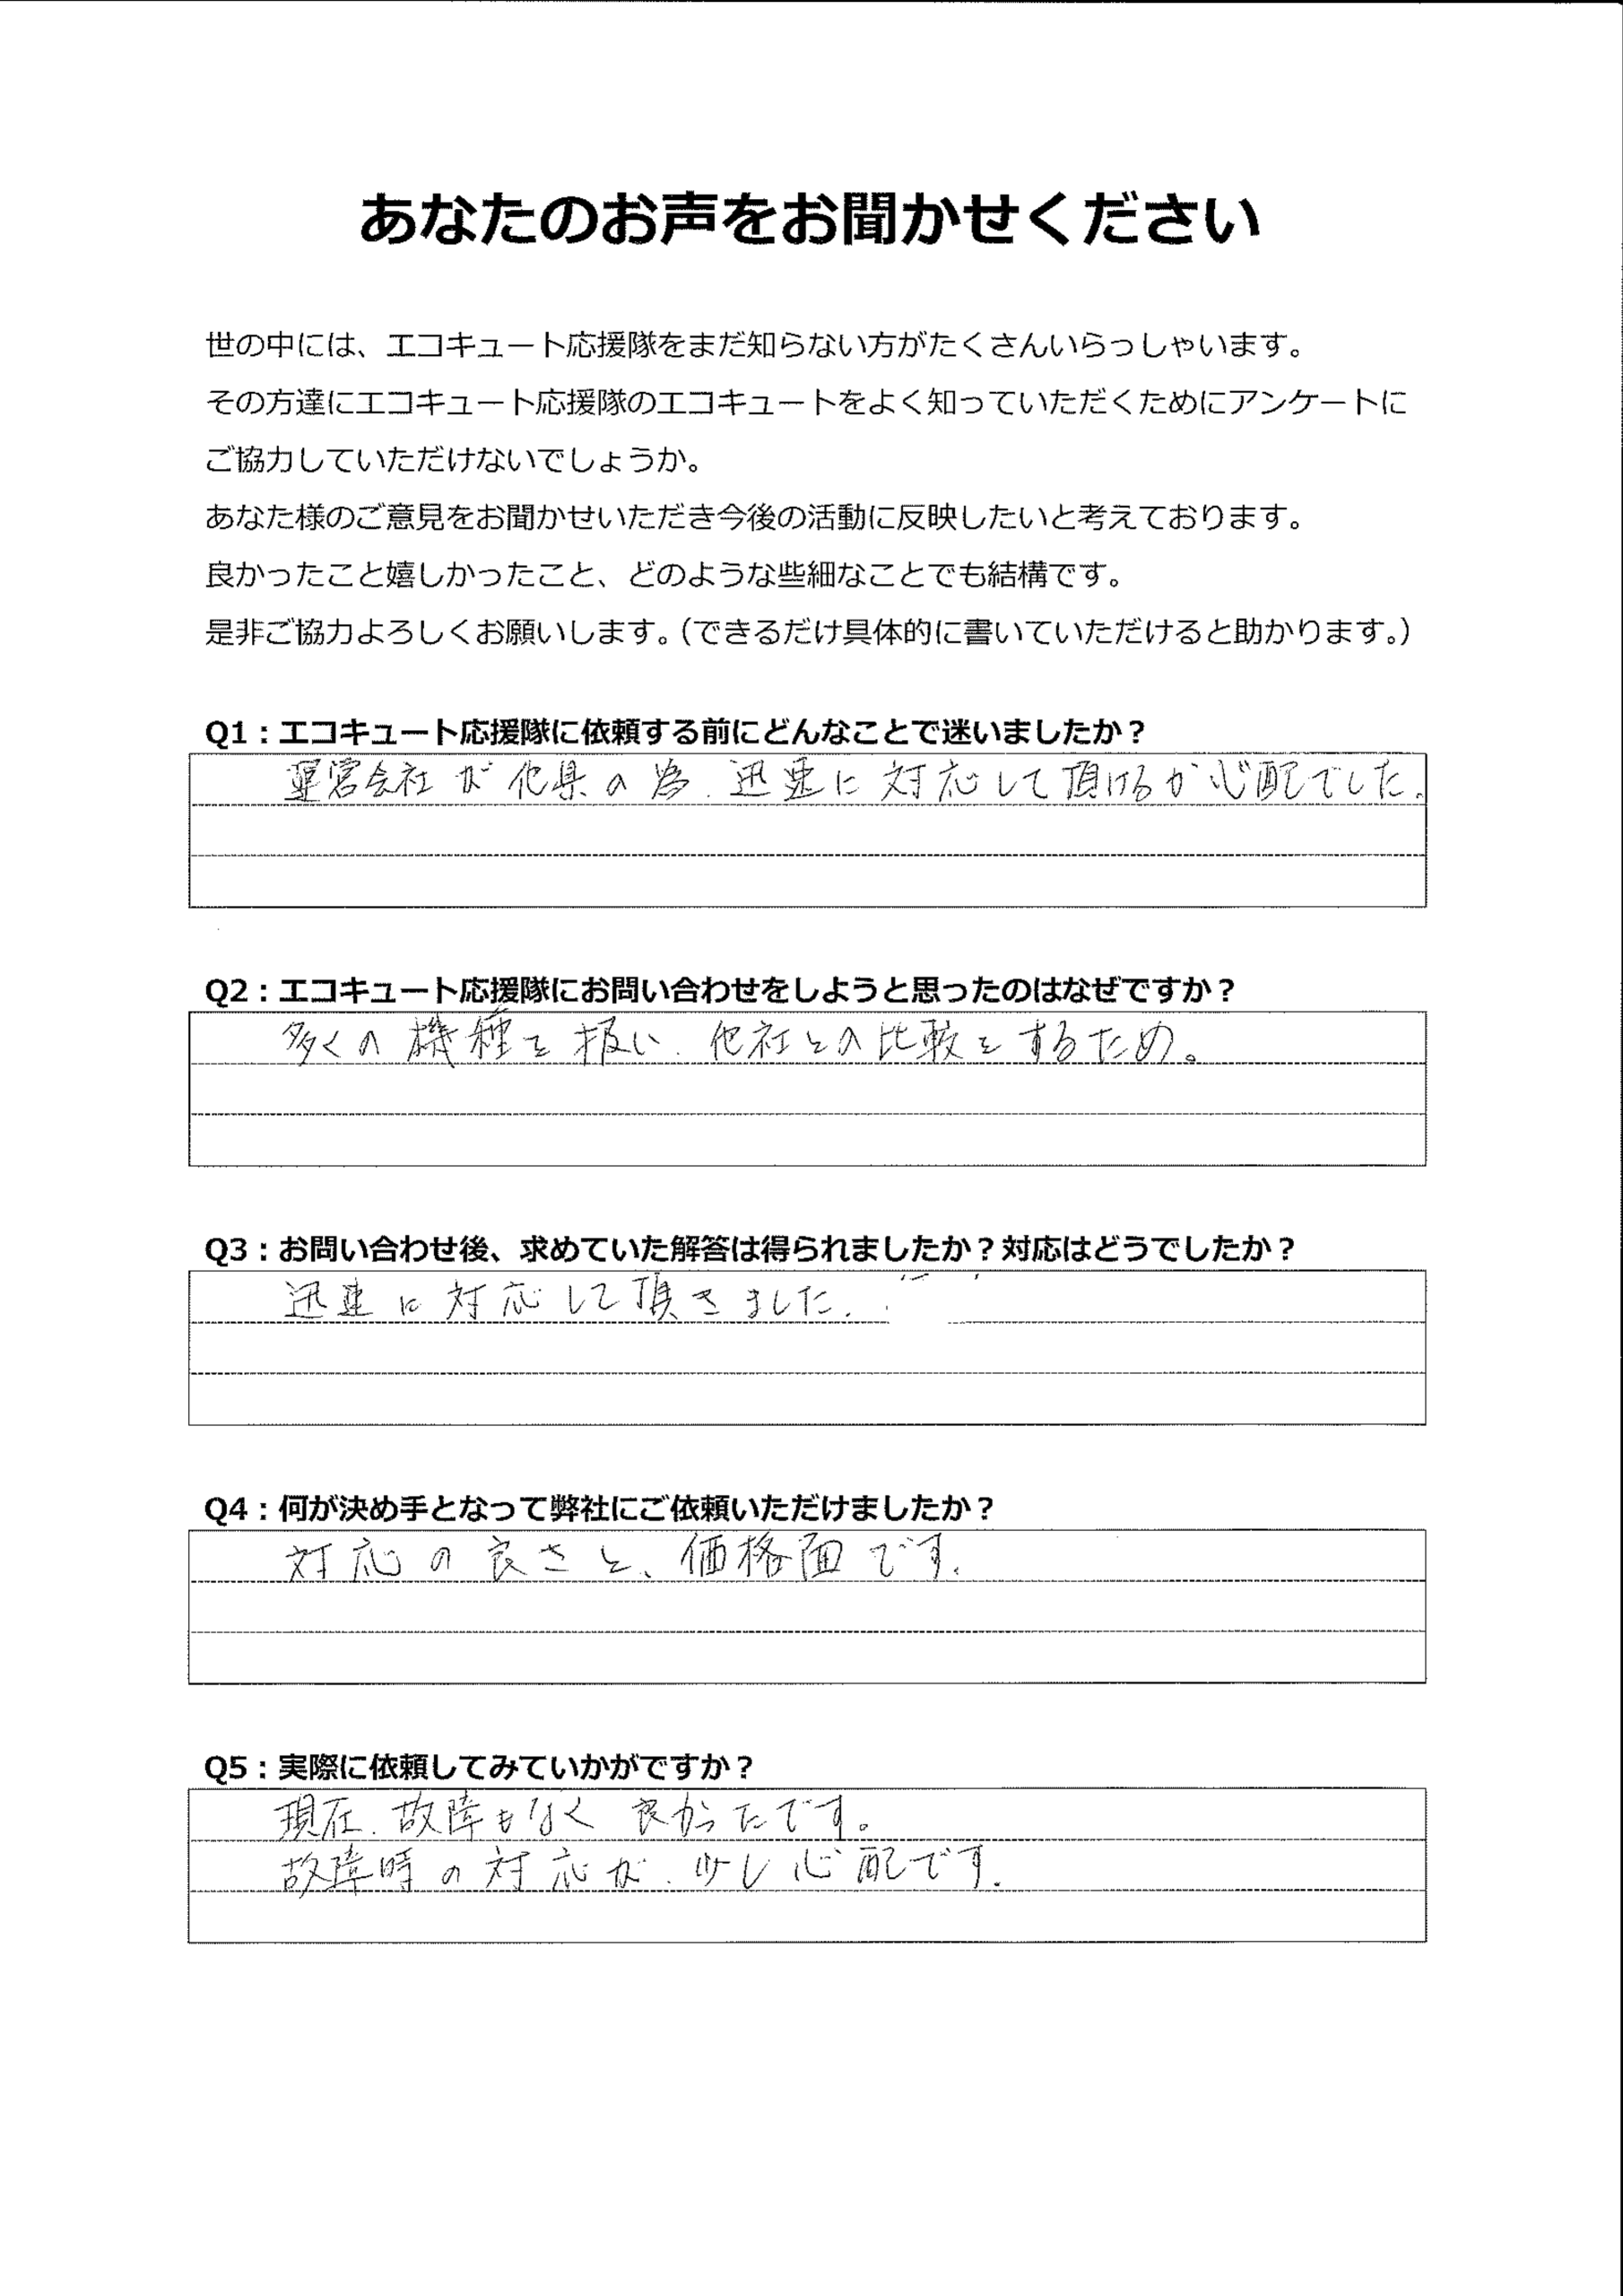 あなたのお声をお聞かせください
世の中には、エコキュート応援隊をまだ知らない方がたくさんいらっしゃいます。
その方達にエコキュート応援隊のエコキュートをよく知っていただくためにアンケートに
ご協力していただけないでしょうか。
あなた様のご意見をお聞かせいただき今後の活動に反映したいと考えております。
良かったこと嬉しかったこと、どのような些細なことでも結構です。
是非ご協力よろしくお願いします。（できるだけ具体的に書いていただけると助かります。）
Q1：エコキュート応援隊に依頼する前にどんなことで迷いましたか？
運営会社が他県の為、迅速に対応して頂けるか心配でした。
Q2：エコキュート応援隊にお問い合わせをしようと思ったのはなぜですか？
多くの機種を扱い、他社との比較をするため。
Q3：お問い合わせ後、求めていた解答は得られましたか？対応はどうでしたか？
迅速に対応して頂きました。
Q4：何が決め手となって弊社にご依頼いただけましたか？
対応の良さと、価格面です。
Q5：実際に依頼してみていかがですか？
現在、故障もなく良かったです。
故障時の対応が、少し心配です。